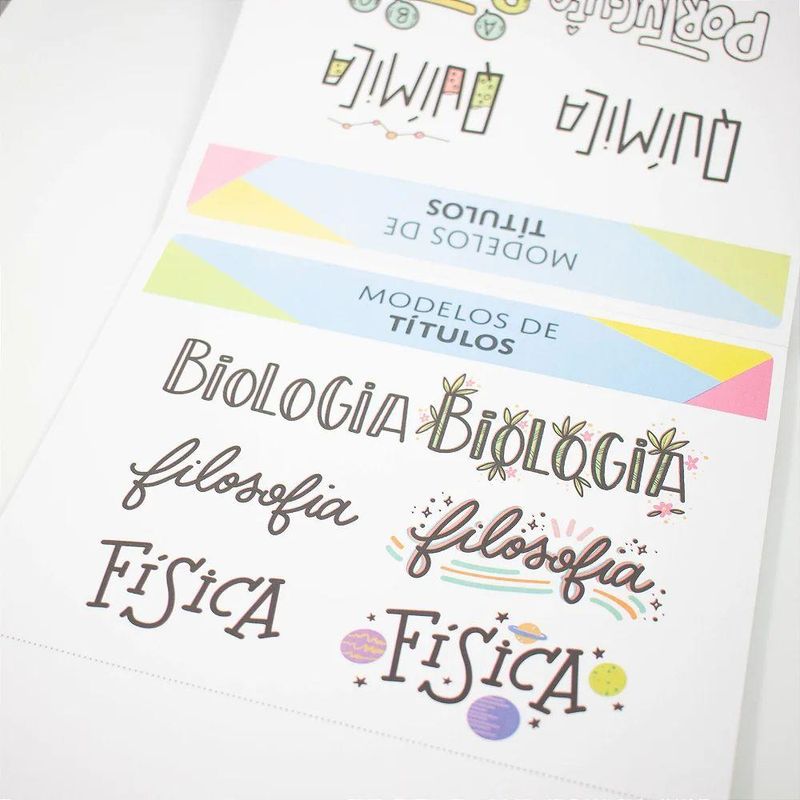 PORTUGUÊS
A B C
QUÍMICA QUÍMICA
MODELOS DE
TÍTULOS
MODELOS DE
TÍTULOS
BiOLOGiA BiOLOGiA
filosofia filosofia
FÍSiCA FÍSiCA